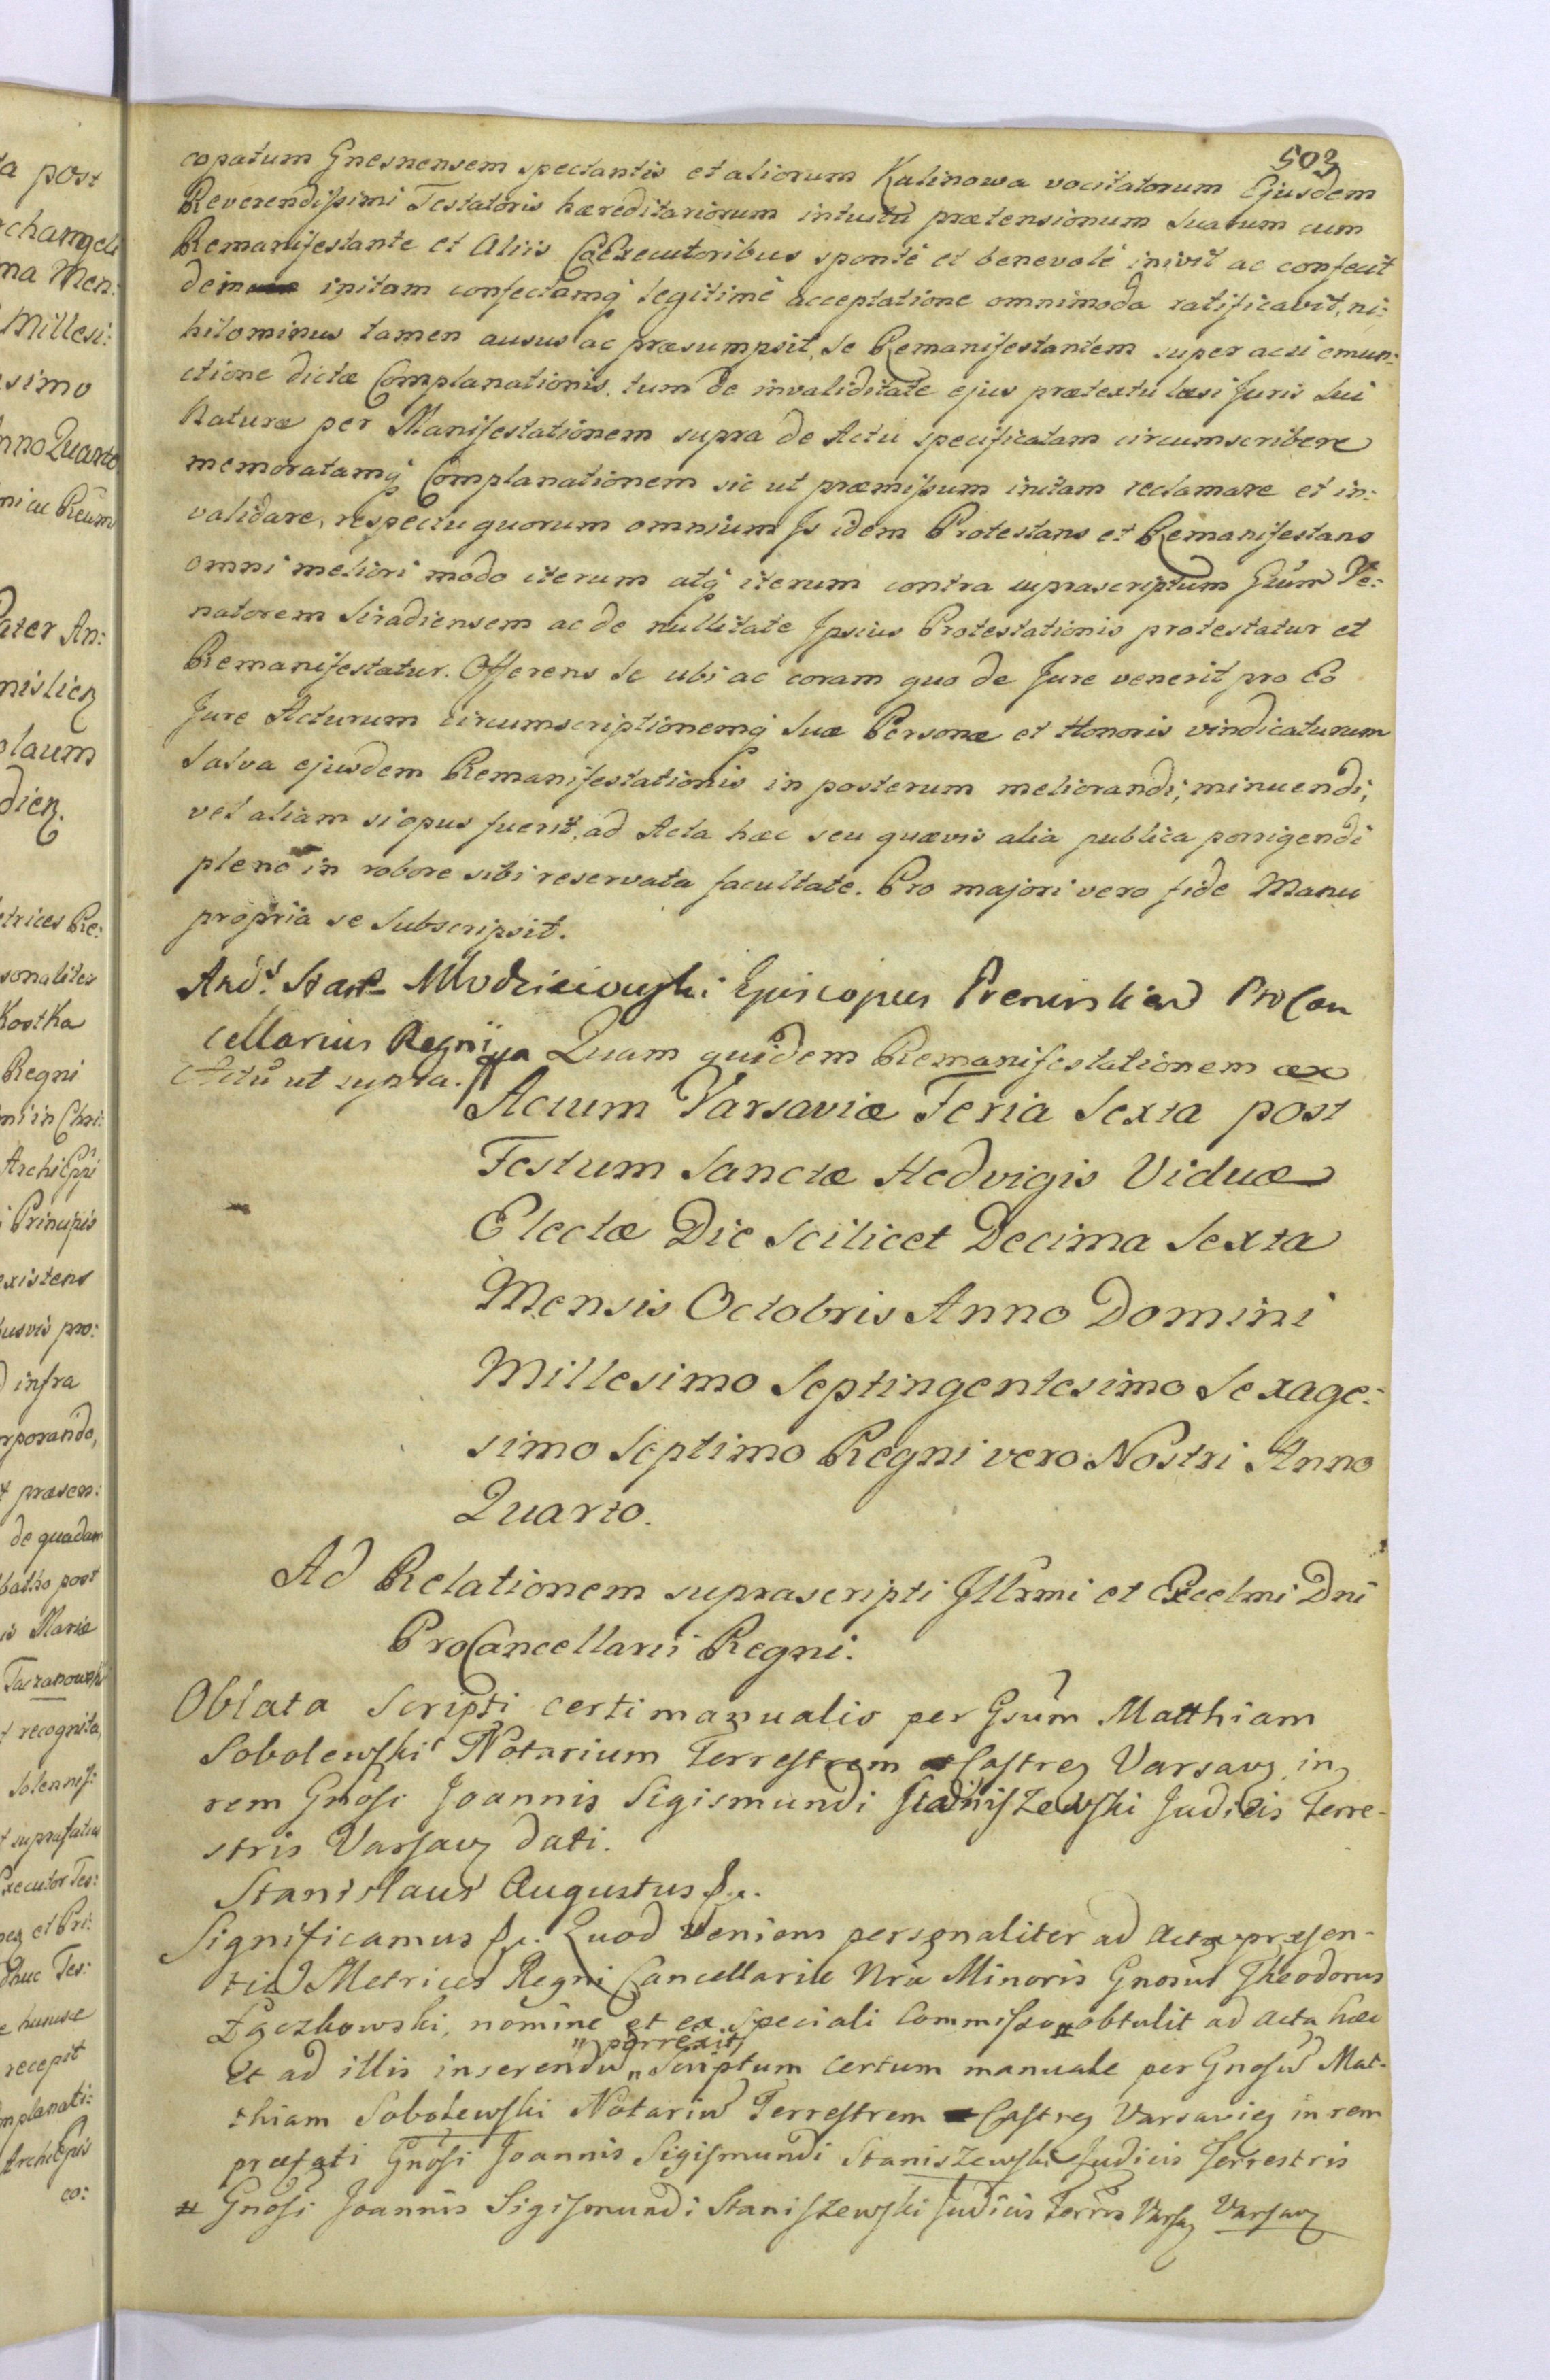 503
copatum Gnesnensem spectantis et aliorum Kalinowa vocitatorum Ejusdem
Reverendissimi Testatoris hæreditariorum intuitu prætensionum suarum cum
Remanifestante et Aliis CoExecutoribus sponte et benevole inivit ac confecit
dein initam confectamq̃ legitime acceptatione omnimoda ratificavit, ni:
hilominus tamen ausus ac præsumpsit, se Remanifestantem super acti emun:
ctione dictæ Complanationis, tum de invaliditate ejus prætextu læsi Juris sui
Naturæ per Manifestationem supra de Actu specificatam circumscribere
memoratamq̃ Complanationem sic ut præmissum initam reclamare et in:
validare, respectu quorum omnium Is idem Protestans et Remanifestans
omni meliori modo iterum atq̃ iterum contra suprascriptum Gsum Ve:
natorem Siradiensem ac de nullitate Ipsius Protestationis protestatur et
Remanifestatur. Offerens se ubi ac coram quo de Jure venerit pro Eo
Jure Acturum circumscriptionemq̃ suæ Personæ et Honoris vindicaturum
Salva ejusdem Remanifestationis in posterum meliorandi, minuendi,
vel aliam si opus fuerit, ad Acta hæc seu quævis alia publica porrigendi
pleno in robore sibi reservata facultate. Pro majori vero fide Manu
propria se Subscripsit.
And. Młodzieiowski Episcopus Premislien ProCan
cellarius Regni Quam quidem Remanifestationem
Actu ut supra.
Actum Varsaviæ Feria Sexta post
Festum Sanctæ Hedvigis Viduæ
Electæ Die scilicet Decima Sexta
Mensis Octobris Anno Domini
Millesimo Septingentesimo Sexage:
simo Septimo Regni vero Nostri Anno
Quarto.
Ad Relationem suprascripti Illrmi et Excelmi Dni
ProCancellarii Regni.
Oblata Scripti certi manualis per Gsum Matthiam
Sobolewski Notarium Terrestrem Castreȝ Varsavȝ in
rem Gnosi Joannis Sigismundi Staniszewski Judicis Terre-
stris Varsavȝ dati.
Stanislaus Augustus &c.
Significamus &c. Quod veniens personaliter ad acta præsen-
tia Metrices Regni Cancellariæ Nræ Minoris Gnosus Theodorus
Łączkowski, nomine et ex speciali Commisso # obtulit ad acta hæc
"porrexit"
et ad illis inserendu " Scriptum certum manuale per Gnosu Mat-
thiam Sobolewski Notariu Terrestrem Castreȝ Varsavieȝ in rem
præfati Gnosi Joannis Sigismundi Staniszewski Judicis Terrestris
# Gnosi Joannis Sigismundi Staniszewski Judicis Terrris Varsaȝ Varsavȝ